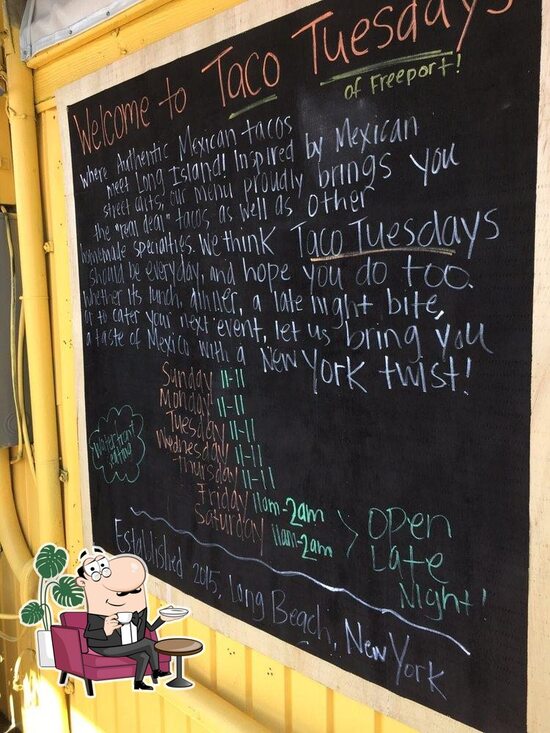 Welcome to Taco Tuesdays
of Freeport!
where Authentic Mexican tacos
meet Long Island! Inspired by Mexican
street arts, our menu proudly brings you
the "real deal" tacos as well as other
homemade specialties. We think Taco Tuesdays
should be everyday, and hope you do too.
Whether its lunch, dinner, a late night bite,
or to cater your next event, let us bring you
a taste of Mexico with a New York twist!
Sunday 11-11
Monday 11-11
Tuesday 11-11
Wednesday 11-11
Thursday 11-11
Friday 11am-2am
Saturday 11am-2am
Open
Late
Night!
Waterfront
Established 2015, Long Beach, New York